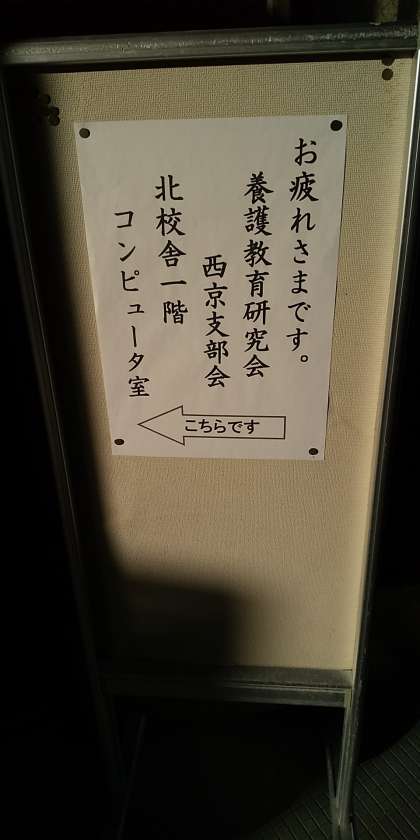 お疲れさまです。
養護教育研究会
西京支部会
北校舎一階
コンピュータ室
こちらです